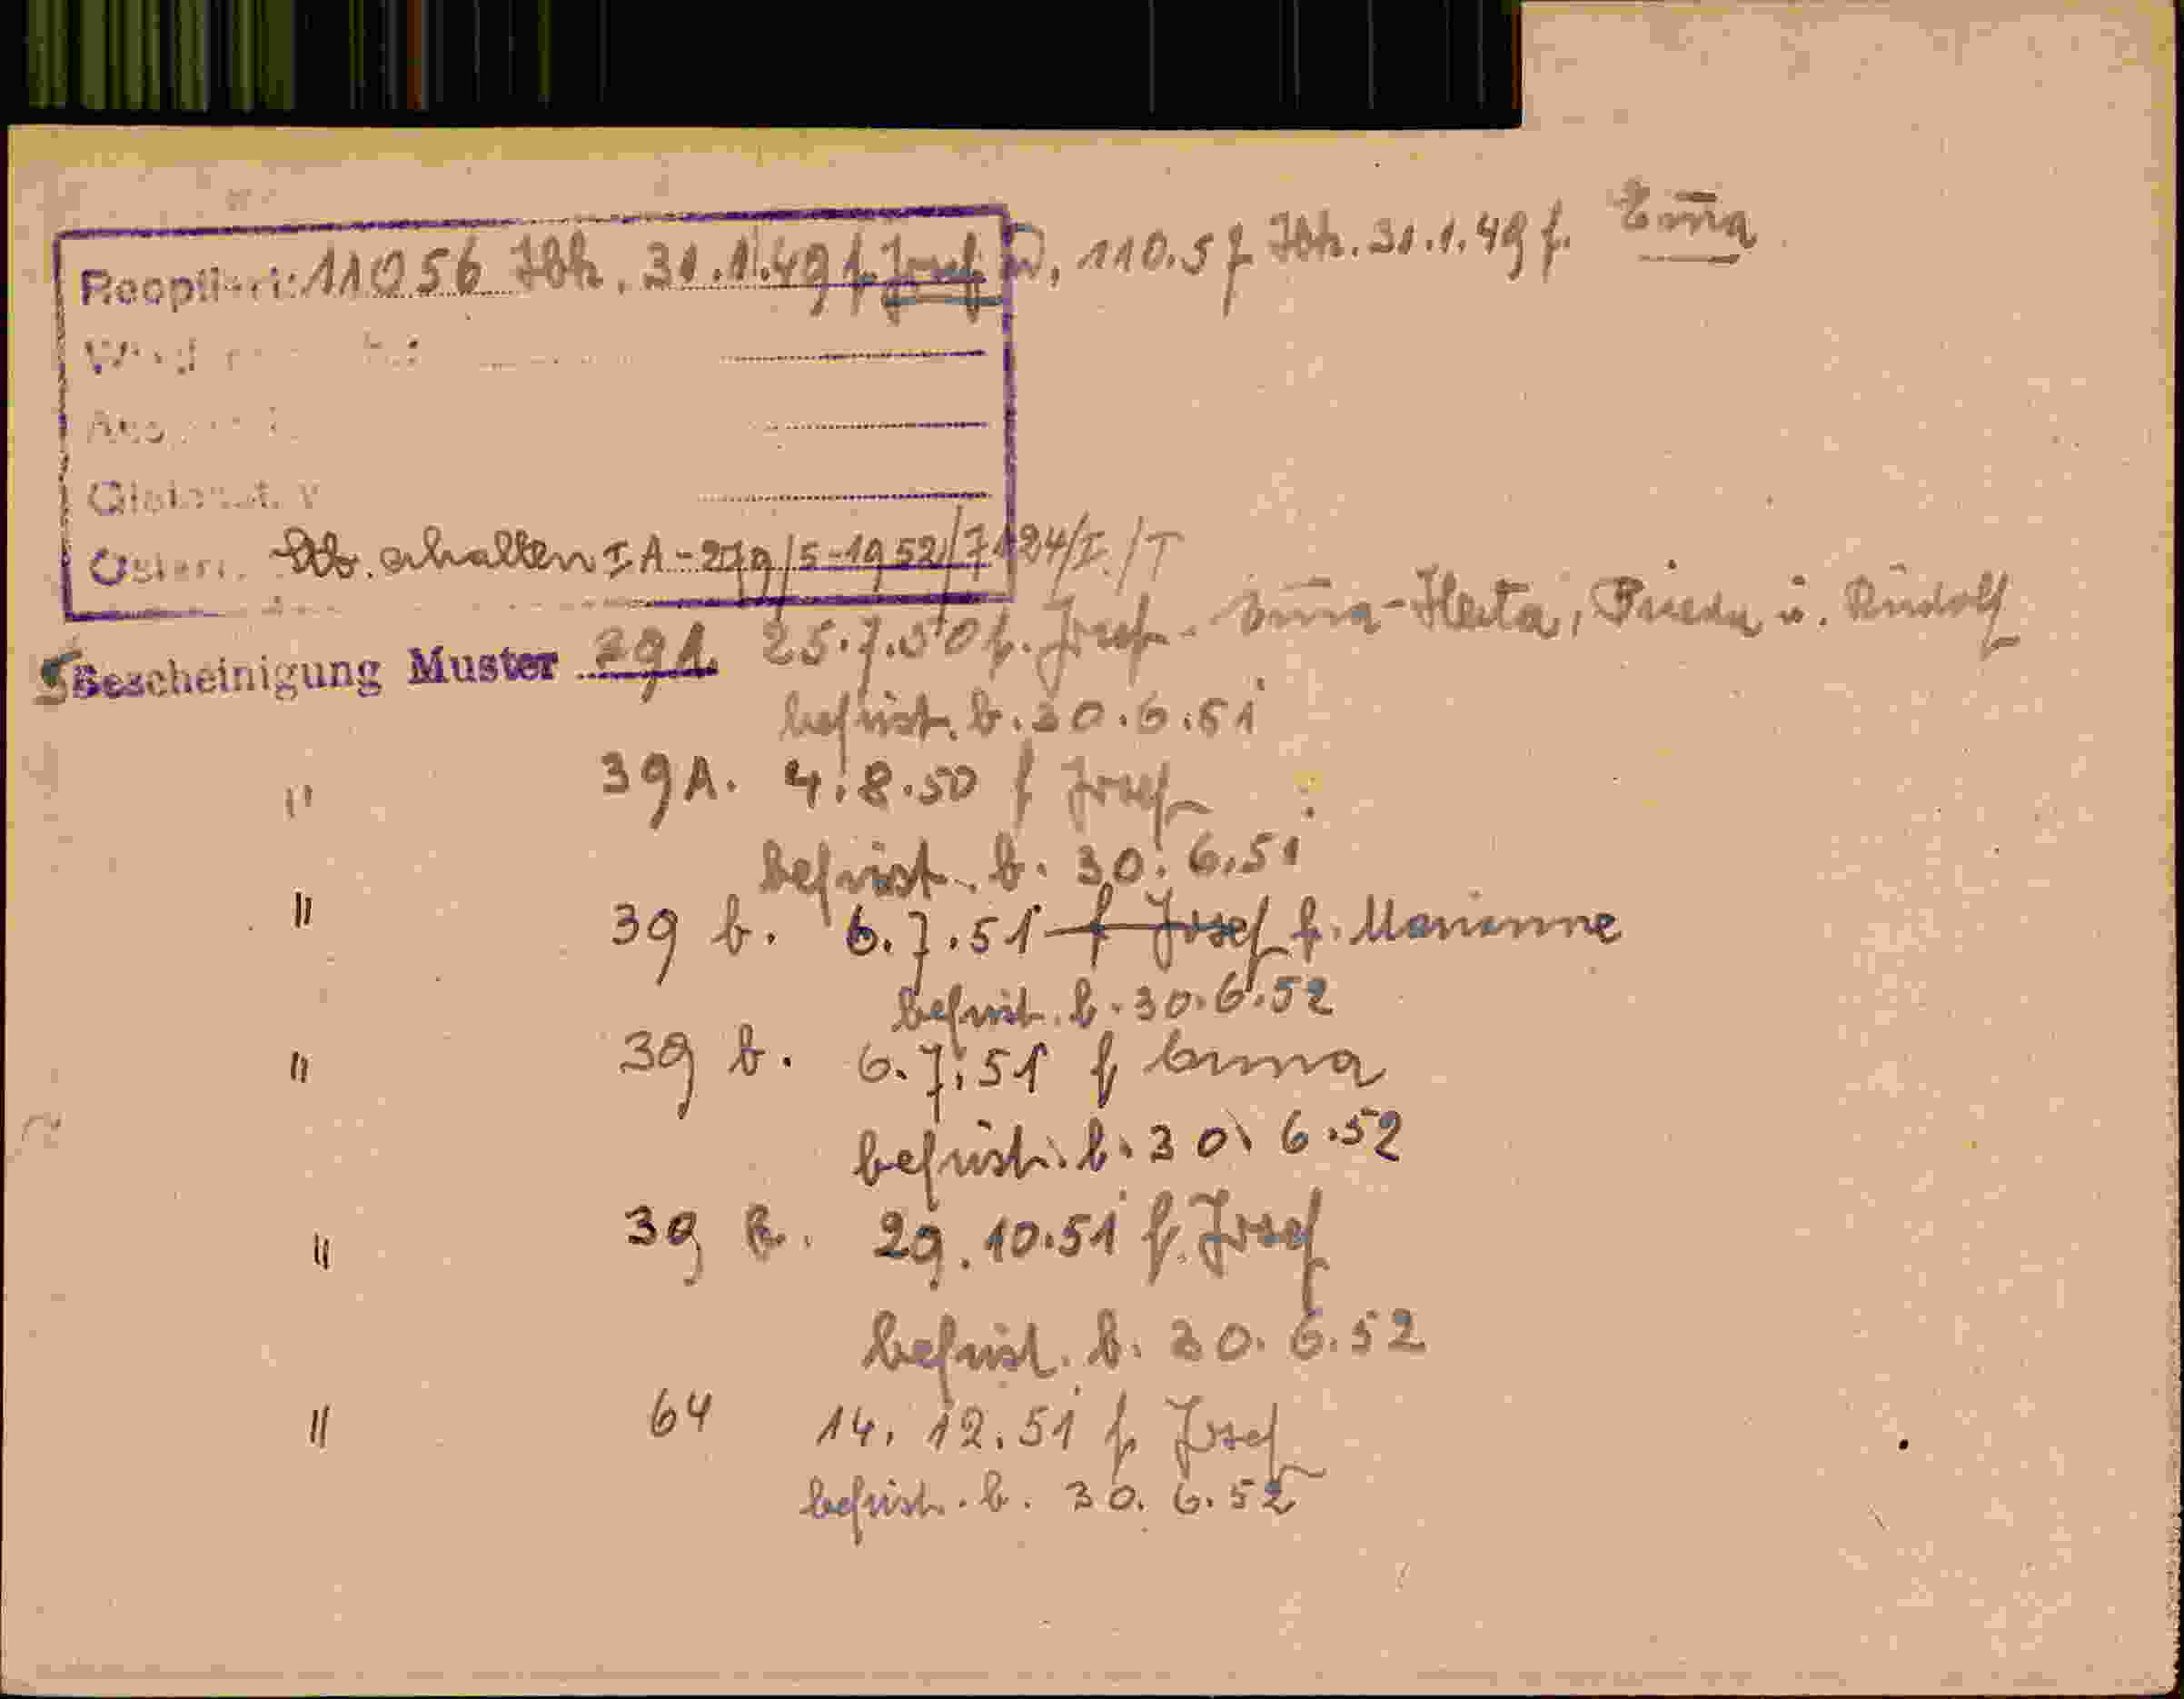 Reoptiert: 11056 Jbk. 31.1.49 f. Josef D, 110.57 Jbk. 31.1.49 f. Em̄a
Österr. Stb. erhalten I A-279/5-1952/7124/I./T
5 Bescheinigung Muster 39A. 25.7.50 f. Josef - Em̄a-Herta, Frieda u. Rudolf
befrist. b. 30.6.51
" 39A. 4.8.50 f Josef
befrist. b. 30.6.51
" 39 b. 6.7.51 f Josef f. Marianne
befrist. b. 30.6.52
" 39 b. 6.7.51 f Emma
befrist. b. 30.6.52
" 39 B. 29.10.51 f. Josef
befrist. b. 30.6.52
" 64 14.12.51 f. Josef
befrist. b. 30.6.52